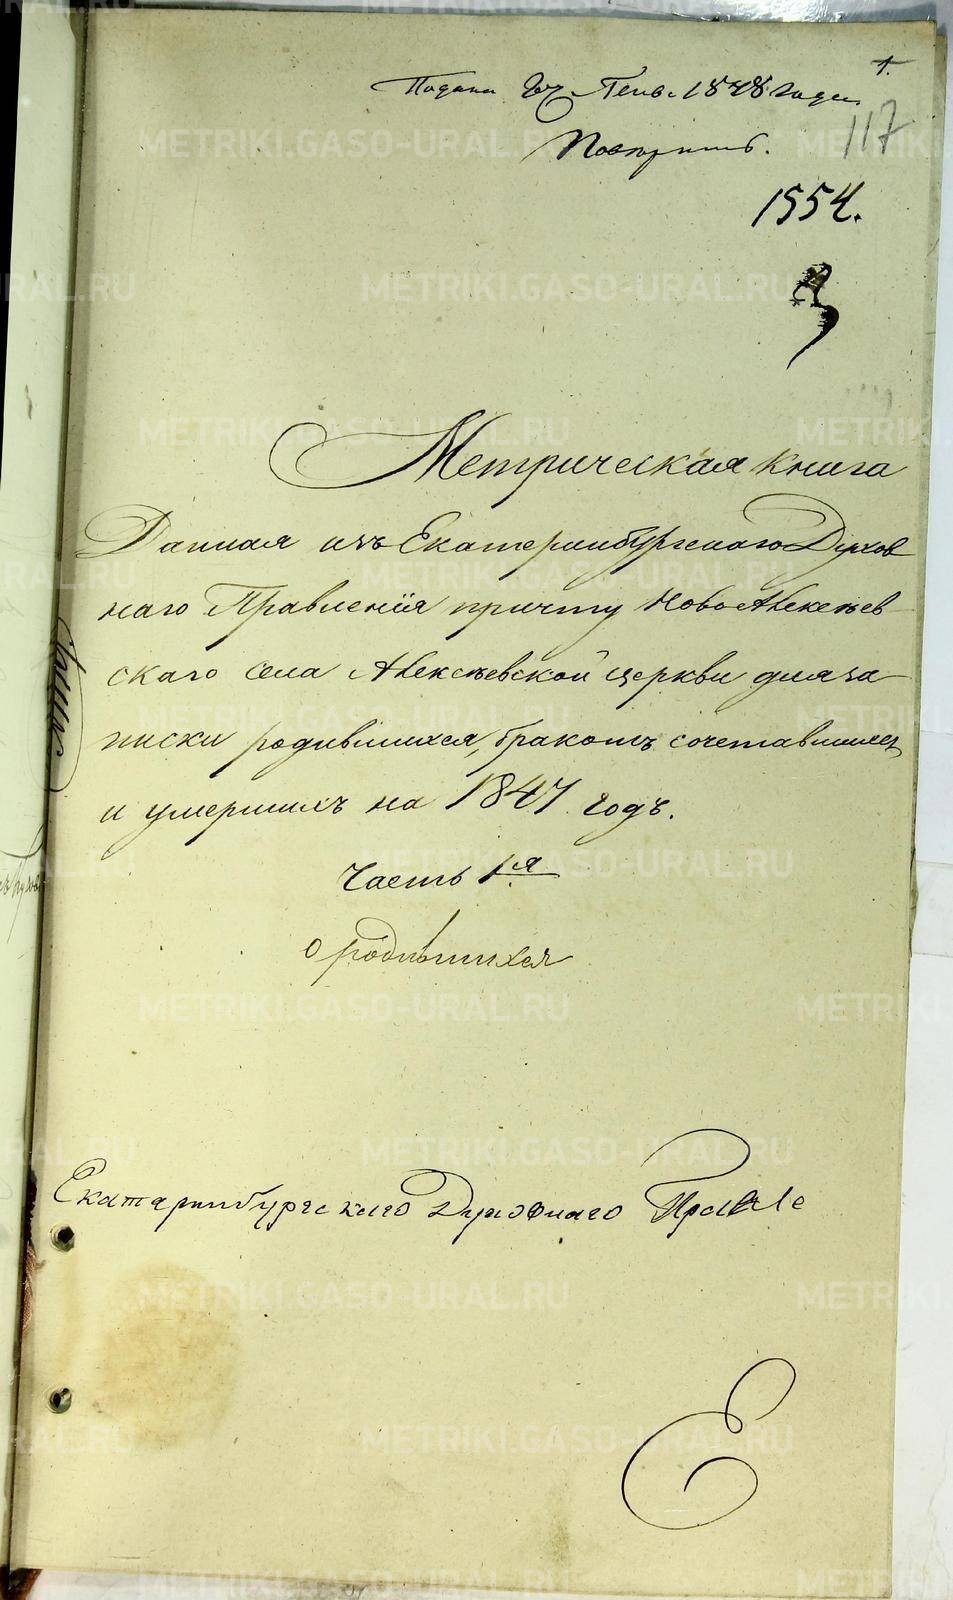 1.
Подана Генв. 1848 года
117
1554.
Метрическая книга
Данная изъ Екатеринбургскаго Духов
наго Правленія причту Новоалексѣев
скаго села Алексѣевской церкви для за
писки родившихся, бракомъ сочетавшихся
и умершихъ на 1847 годъ.
Часть 1я
о родившихся
Екатеринбургскаго Духовнаго Правле
METRIKI.GASO-URAL.RU